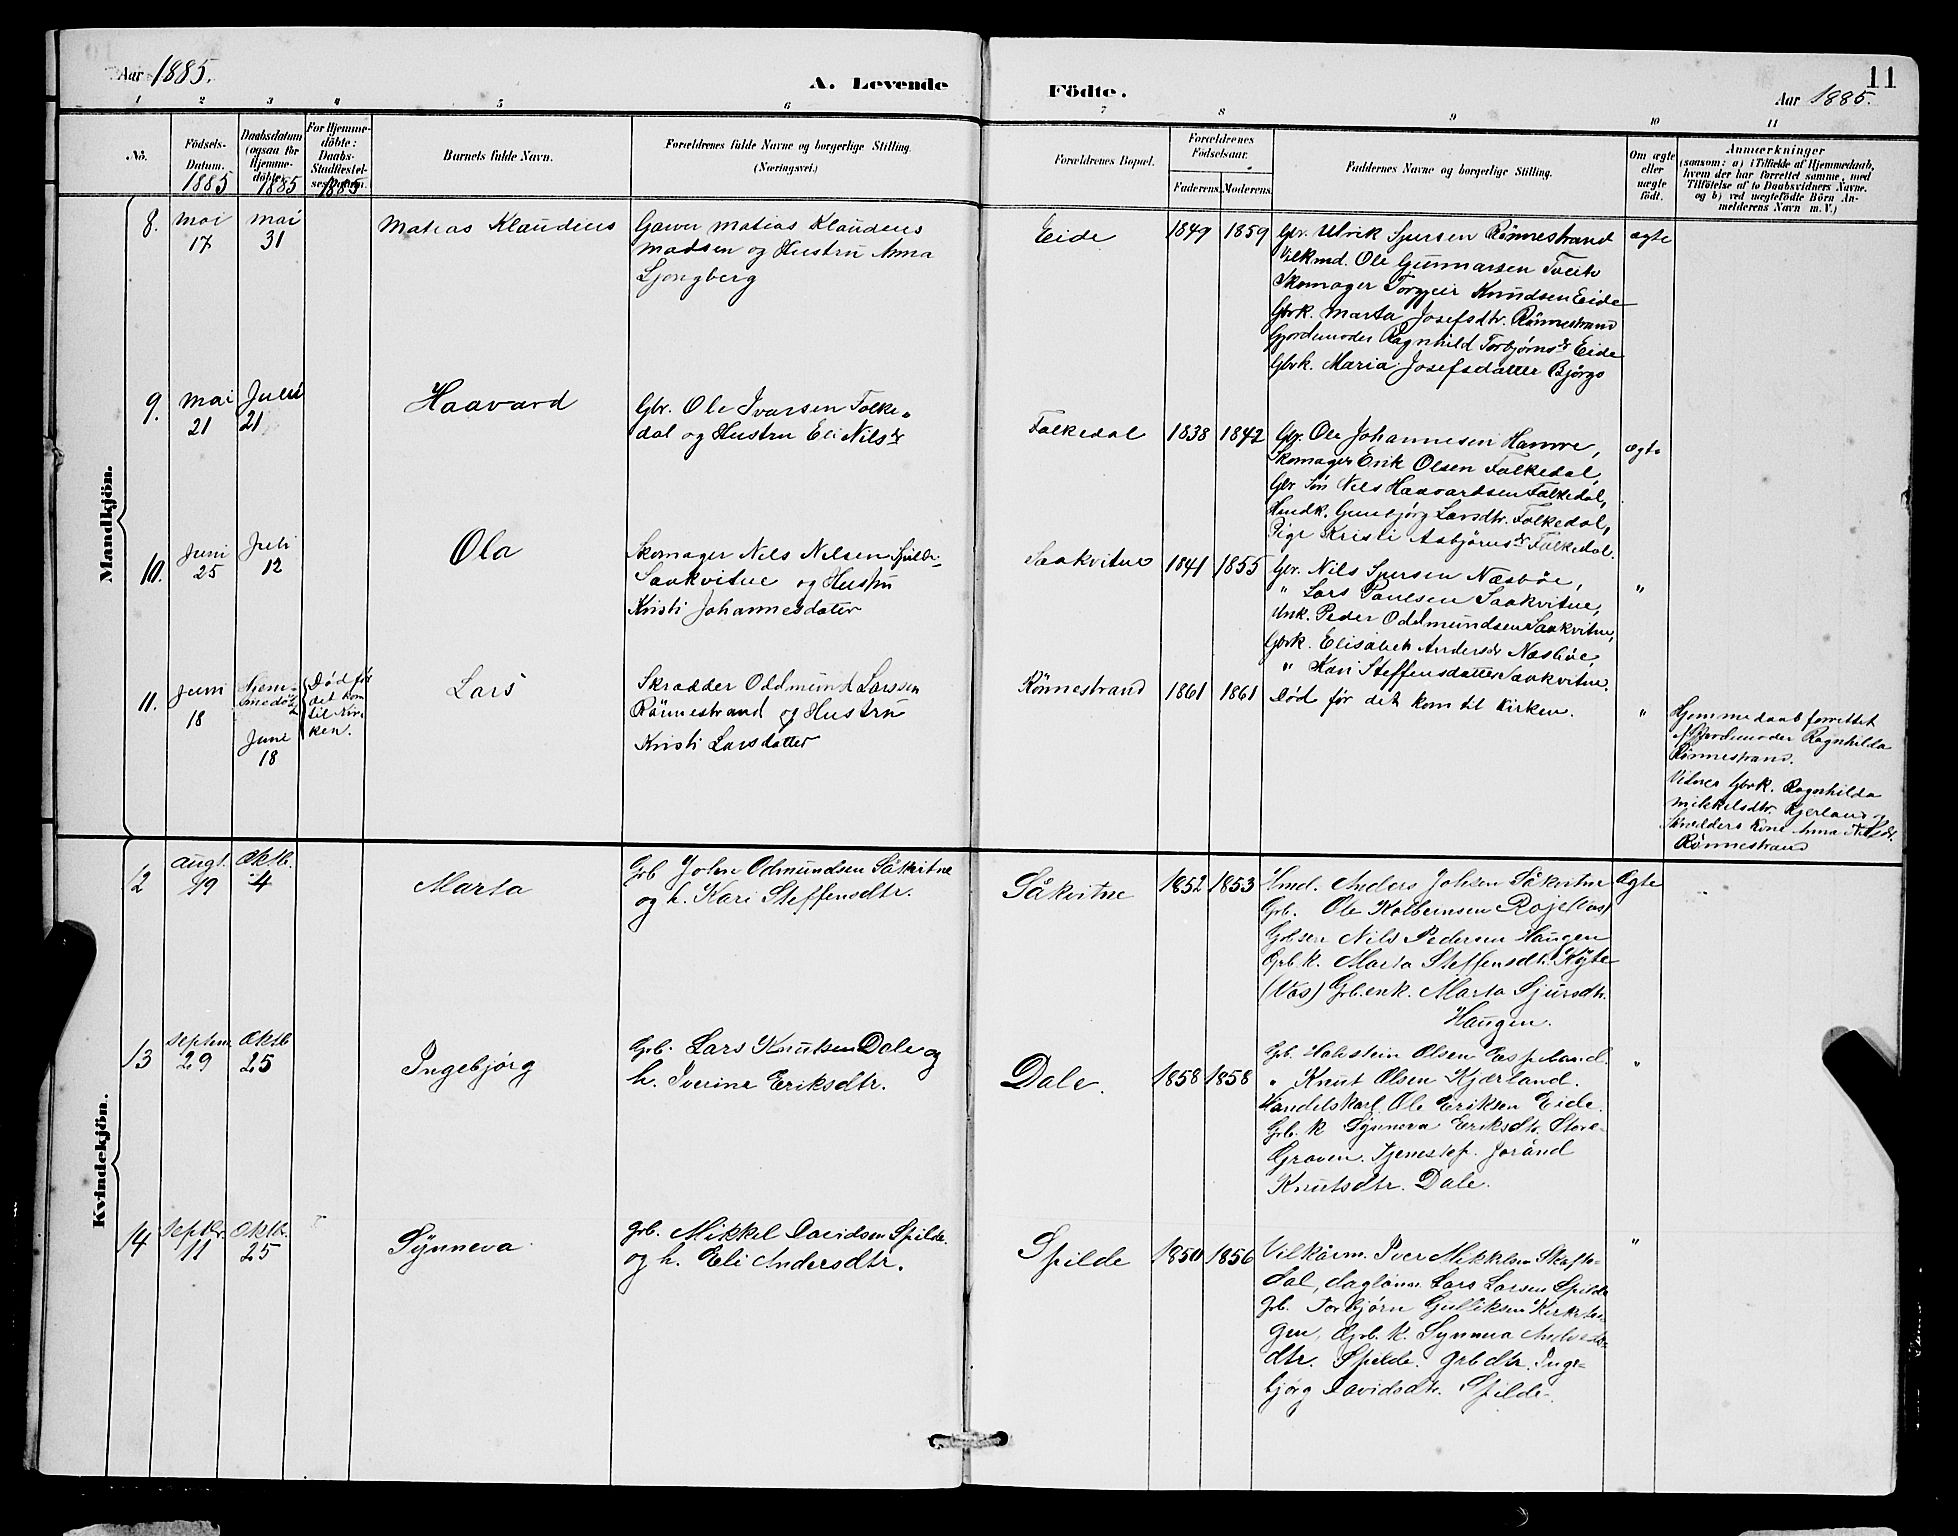 Aar 1885.
A. Levende
Födte.
11
Aar 1885.
1 2 3 4 5 6 7 8 9 10 11
No.
Födsels-
Datum.
1885
Daabsdatum
(ogsaa for
Hjemme-
döbte).
1885
For Hjemme-
döbte:
Daabs-
Stadfæstel-
sesDatum.
1885
Barnets fulde Navn.
Forældrenes fulde Navne og borgerlige Stilling.
(Næringsvei.)
Forældrenes Bopæl.
Forældrenes
Födselsaar.
Faderens. Moderens.
Faddernes Navne og borgerlige Stilling.
Om ægte
eller
uægte
födt.
Anmærkninger
(saasom: a) i Tilfælde af Hjemmedaab,
hvem der har forrettet samme, med
Tilföielse af to Daabsvidners Navne.
og b) ved uægtefödte Börn An-
melderens Navn m. V.)
Mandkjön.
8.
Mai
17
Mai
31
Matias Klaudius
Garver Matias Klaudius
Madsen og Hustru Anna
Ljongberg
Eide
1849 1859
Gbr. Ulrik Sjursen Rönnestrand
Vilkmd. Ole Gunnarsen Tveito
Skomager Torgeir Knudsen Eide
Gbrk. Marta Josefsdtr. Rönnestrand
Gjordemoder Ragnhild Torbjørnsdr Eide
Gbrk. Maria Josefsdatter Bjørgo
ægte
9.
Mai
21
Juni
21
Haavard
Gbr. Ole Ivarsen Folke-
dal og Hustru Eli Nilsdr
Folkedal
1838 1842
Gbr. Ole Johannesen Hamre,
Skomager Erik Olsen Folkedal,
Gbr Sön Nils Haavardsen Folkedal,
Husmk. Gunbjørg Larsdtr. Folkedal,
Pige Kristi Asbjørnsdr Folkedal.
ægte
10.
Juni
25
Juli
12
Ola
Skomager Nils Nilsen
Saakvitne og Hustru
Kristi Johannesdatter
Saakvitne
1841 1855
Gbr. Nils Sjursen Næsböe,
" Lars Paulsen Saakvitne,
Unk. Peder Oddmundsen Saakvitne,
Gbrk. Elisabeth Andersdr Næsböe,
" Kari Steffensdatter Saakvitne.
"
11.
Juni
18
Hjem-
medöbt
Juni
18
Död för
det kom
til Kir-
ken.
Lars
Skrædder Oddmund Larssen
Rönnestrand og Hustru
Kristi Larsdatter
Rönnestrand
1861 1861
Död før det kom til Kirken.
"
Hjemmedaab forrettet
af Gjordemoder Ragnhilda
Rønnestrand.
Vidner Gbrk. Ragnhilda
Mikkelsdtr Kjerland og
Skrædders Kone Anna Nilsdr.
Rønnestrand
Kvindekjön.
12
Augt.
19
Oktb.
4
Marta
Grb John Odmundsen Såkvitne
og h. Kari Steffensdtr.
Såkvitne
1852 1853
Hmd. Anders Johsen Såkvitne
Grb. Ole Kolbeinsen Roje (Vos)
Grb sen Nils Pedersen Haugen
Grb. k. Marta Steffensdtr. Kyte
(Vos) Grb. enk. Marta Sjursdtr.
Haugen.
Ægte
13
Septem.
29
Oktb
25
Ingebjörg
Grb. Lars Knutsen Dale og
h. Iverine Eriksdtr.
Dale.
1858 1858
Grb. Halstein Olsen Espeland.
" Knut Olsen Kjærland.
Handelskarl. Ole Eriksen Eide.
Grb. k Synneva Eriksdtr. Store-
Graven. Tjenestep. Jorånd
Knutsdtr. Dale.
"
14
Septbr.
11
Oktbr.
25
Synneva
Grb. Mikkel Davidsen Spilde.
og h. Eli Andersdtr.
Spilde
1850 1856
Vilkårm. Iver Mikkelsen Skafto-
dal, daglönn. Lars Larsen Spilde
Grb. Torbjörn Gulliksen Kirkelan-
gen, Grb. k. Synneva Anders-
dtr. Spilde. Grb dtr. Inge-
björg Davidsdtr. Spilde.
"